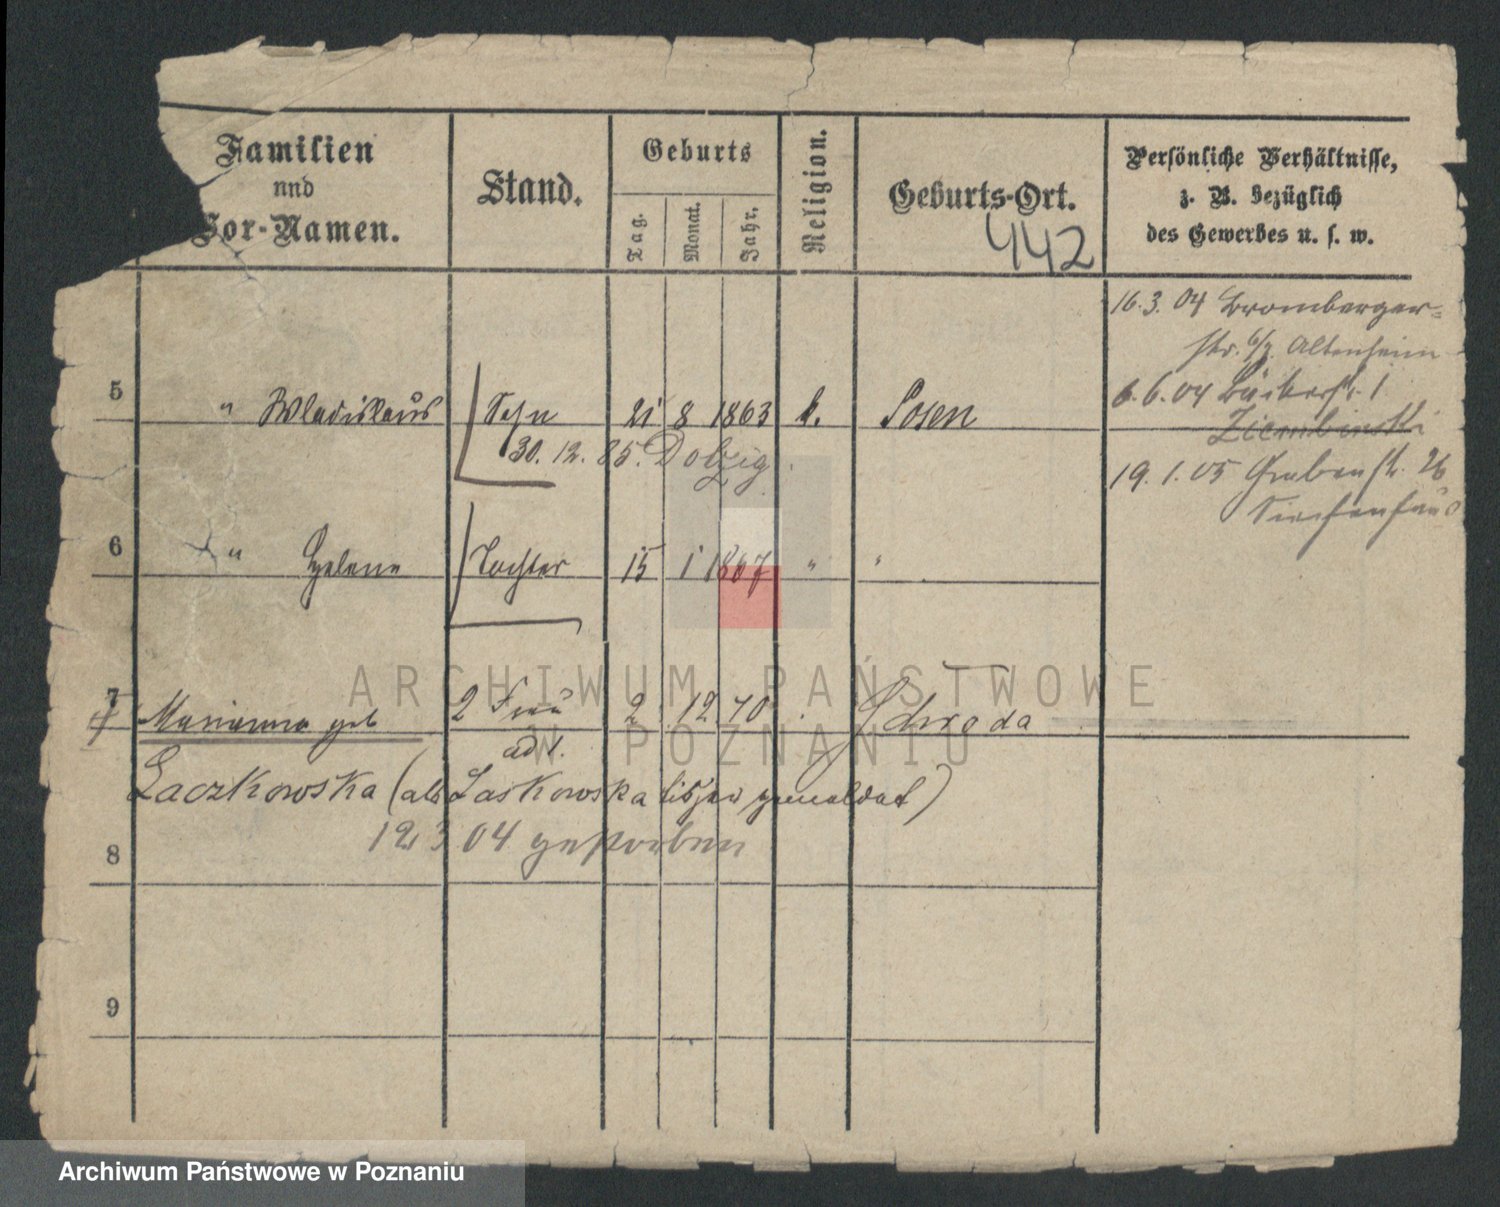 Familien
und
Vor-Namen.
Stand.
Geburts
Tag.
Monat.
Jahr.
Religion.
Geburts-Ort.
442
Persönliche Verhältnisse,
z. B. bezüglich
des Gewerbes u. s. w.
16.3.04 Bromberger-
str. 6/7 Altenheim
6.6.04 Bäckerstr. 1
Ziembinski
19.1.05 Grabenstr. 26
Siechenhaus
5 " Wladislaus Sohn 21 8 1863 k. Posen
30.12.85. Dolzig.
6 " Helene Tochter 15 1 1867 " "
7 Marianna geb 2 Frau 2 12 70. Schroda
ad 1.
Laczkowska (als Laskowska bisher gemeldet)
12 3 04 gestorben
8
9
ARCHIWUM PAŃSTWOWE
W POZNANIU
Archiwum Państwowe w Poznaniu